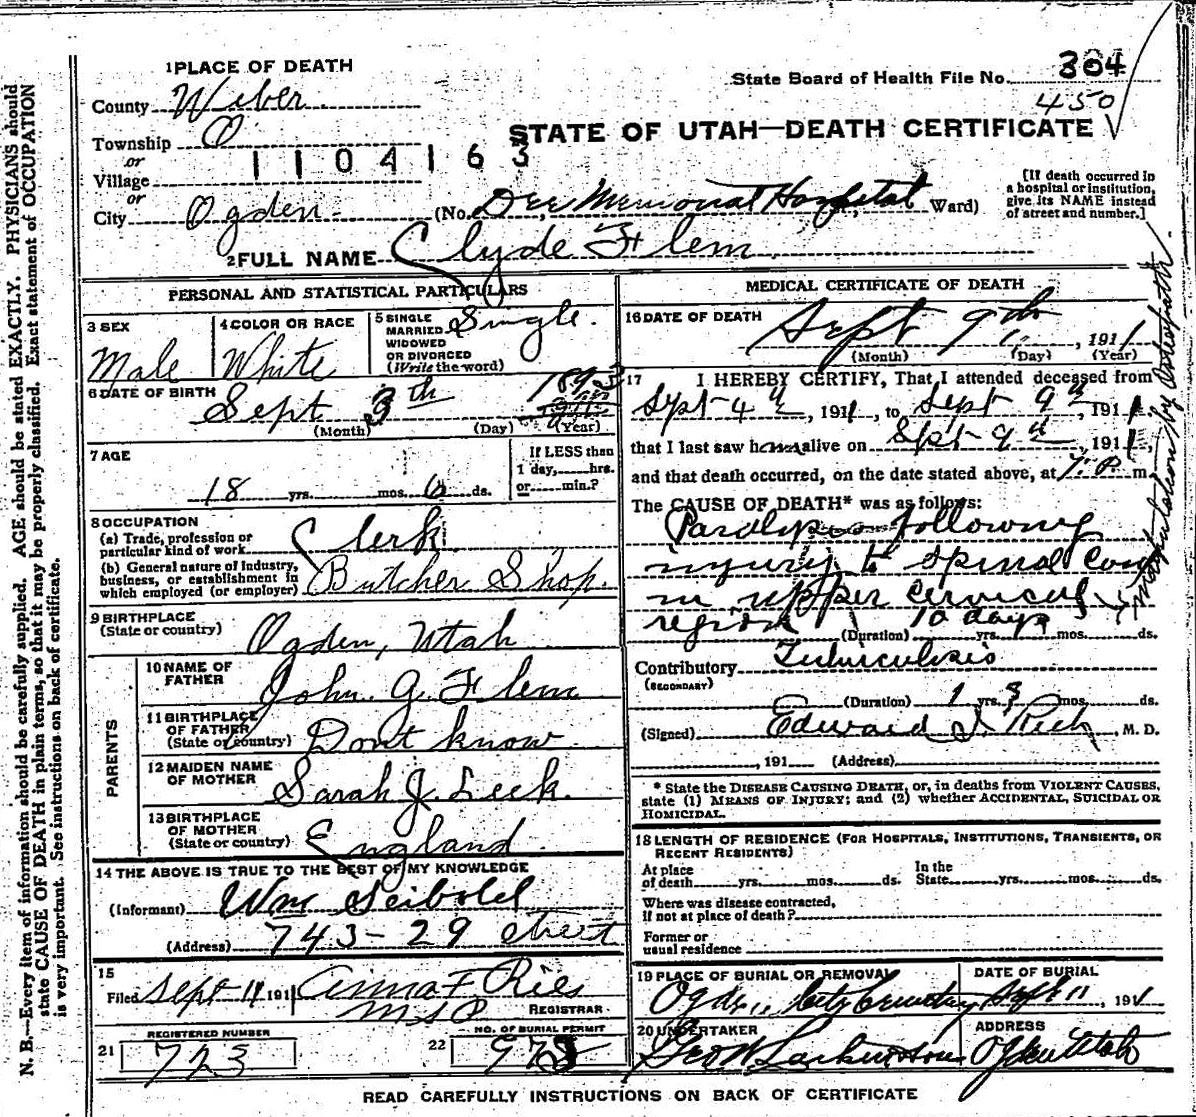 1 PLACE OF DEATH
State Board of Health File No. 304
450
County Weber
Township O
or
Village
1104163
STATE OF UTAH—DEATH CERTIFICATE
or
City Ogden (No. Dee Memorial Hospital Ward)
[If death occurred in
a hospital or institution,
give its NAME instead
of street and number.]
2 FULL NAME Clyde Flem
PERSONAL AND STATISTICAL PARTICULARS
3 SEX
Male
4 COLOR OR RACE
White
5 SINGLE
MARRIED
WIDOWED
OR DIVORCED
(Write the word)
Single.
6 DATE OF BIRTH
Sept 3th 1893
(Month) (Day) (Year)
7 AGE
18 yrs. mos. 6 ds.
If LESS than
1 day, hrs.
or min.?
8 OCCUPATION
(a) Trade, profession or
particular kind of work
Clerk
(b) General nature of industry,
business, or establishment in
which employed (or employer)
Butcher Shop.
9 BIRTHPLACE
(State or country)
Ogden, Utah
PARENTS
10 NAME OF
FATHER
John. G. Flem
11 BIRTHPLACE
OF FATHER
(State or country)
Dont know
12 MAIDEN NAME
OF MOTHER
Sarah J. Leek.
13 BIRTHPLACE
OF MOTHER
(State or country)
England
14 THE ABOVE IS TRUE TO THE BEST OF MY KNOWLEDGE
(Informant) Wm Seibold
(Address) 743 - 29 street
15
Filed Sept 11 191 Anna F Ries
REGISTRAR
REGISTERED NUMBER
21 723
NO. OF BURIAL PERMIT
22
MEDICAL CERTIFICATE OF DEATH
16 DATE OF DEATH
Sept 9th, 1911
(Month) (Day) (Year)
17 I HEREBY CERTIFY, That I attended deceased from
Sept 4th, 1911, to Sept 9th, 1911
that I last saw him alive on Sept 9th, 1911
and that death occurred, on the date stated above, at 7. P. m.
The CAUSE OF DEATH* was as follows:
Paralysis following
injury to spinal cord
in upper cervical
region
(Duration) 10 days yrs. mos. ds.
Contributory Tuberculosis
(SECONDARY)
(Duration) 1 yrs. 8 mos. ds.
(Signed) Edward I. Rich, M. D.
, 191 (Address)
* State the DISEASE CAUSING DEATH, or, in deaths from VIOLENT CAUSES,
state (1) MEANS OF INJURY; and (2) whether ACCIDENTAL, SUICIDAL OR
HOMICIDAL.
18 LENGTH OF RESIDENCE (FOR HOSPITALS, INSTITUTIONS, TRANSIENTS, OR
RECENT RESIDENTS)
At place
of death yrs. mos. ds.
In the
State yrs. mos. ds.
Where was disease contracted,
if not at place of death?
Former or
usual residence
19 PLACE OF BURIAL OR REMOVAL
Ogden City Cemetery
DATE OF BURIAL
Sept 11, 191
20 UNDERTAKER
Geo W Larkin & Sons
ADDRESS
Ogden Utah
READ CAREFULLY INSTRUCTIONS ON BACK OF CERTIFICATE
N. B.—Every item of information should be carefully supplied. AGE should be stated EXACTLY. PHYSICIANS should
state CAUSE OF DEATH in plain terms, so that it may be properly classified. Exact statement of OCCUPATION
is very important. See instructions on back of certificate.
manipulation by Osteopath.